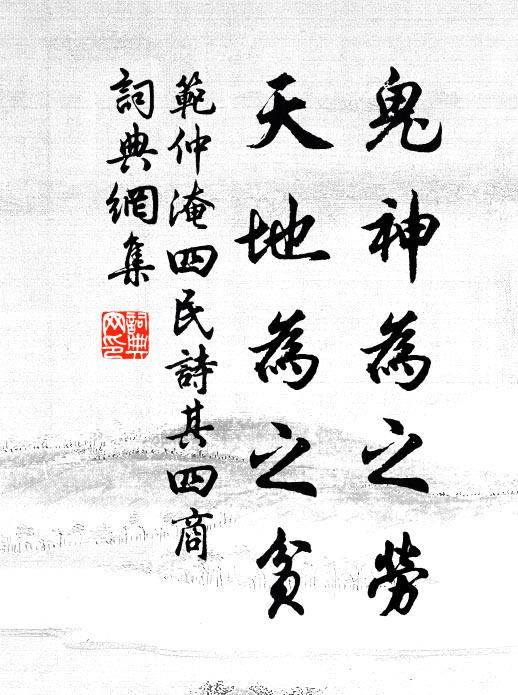 鬼神為之勞
天地為之貧
範仲淹四民詩其四商
詞典網集